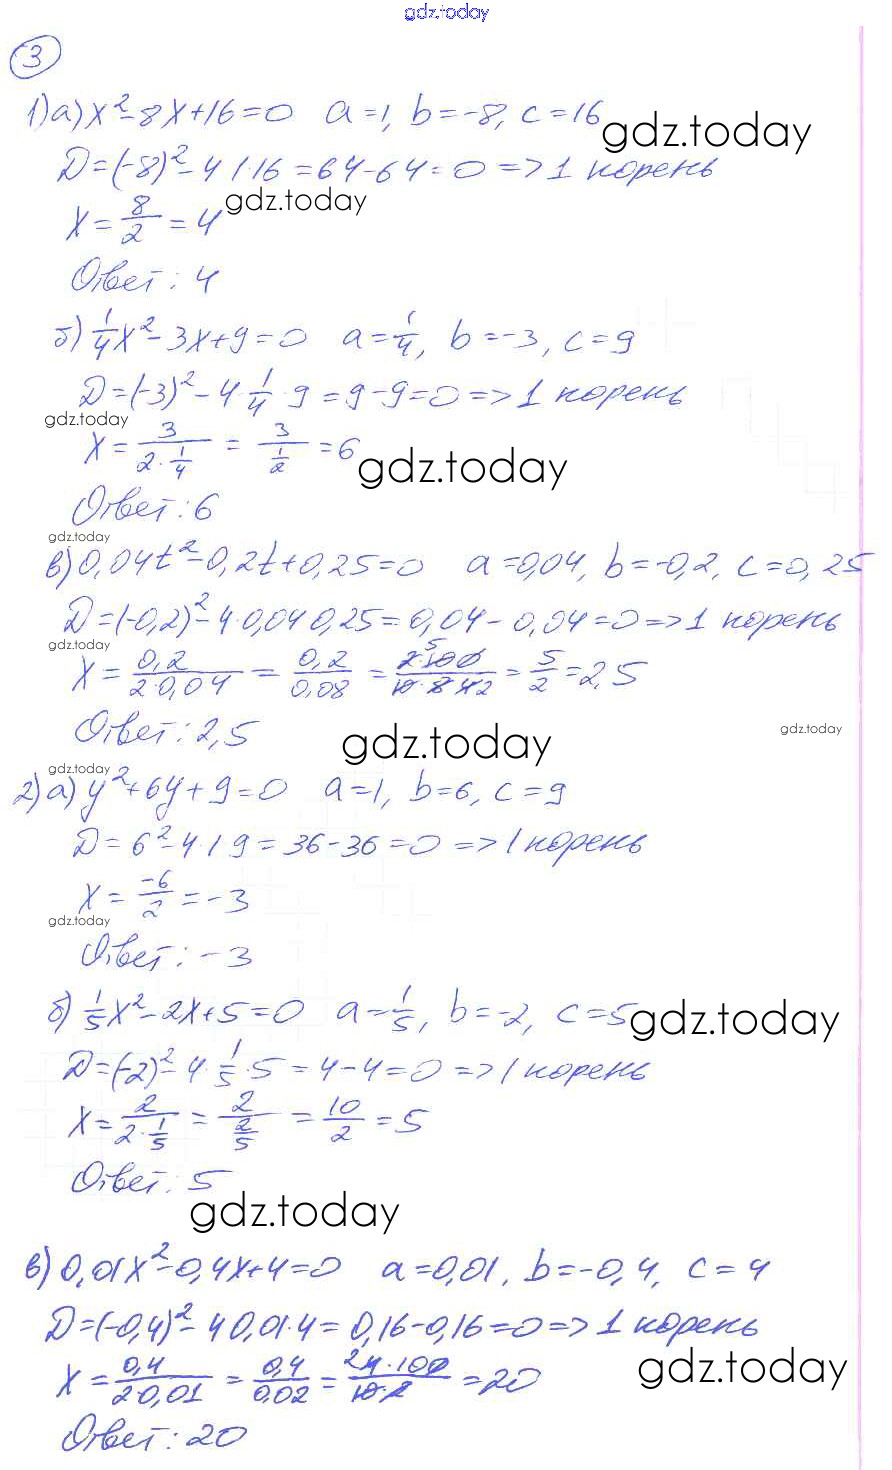 gdz.today
3
1) а) x² - 8x + 16 = 0 a = 1, b = -8, c = 16 gdz.today
D = (-8)² - 4·1·16 = 64 - 64 = 0 => 1 корень
x = 8/2 = 4 gdz.today
Ответ: 4
б) 1/4 x² - 3x + 9 = 0 a = 1/4, b = -3, c = 9
D = (-3)² - 4·1/4·9 = 9 - 9 = 0 => 1 корень
gdz.today
x = 3/(2·1/4) = 3/(1/2) = 6 gdz.today
Ответ: 6
gdz.today
в) 0,04t² - 0,2t + 0,25 = 0 a = 0,04, b = -0,2, c = 0,25
D = (-0,2)² - 4·0,04·0,25 = 0,04 - 0,04 = 0 => 1 корень
gdz.today
x = 0,2/(2·0,04) = 0,2/0,08 = 2·100/(10·8) = 5/2 = 2,5
Ответ: 2,5 gdz.today gdz.today
gdz.today
2) а) y² + 6y + 9 = 0 a = 1, b = 6, c = 9
D = 6² - 4·1·9 = 36 - 36 = 0 => 1 корень
x = -6/2 = -3
gdz.today
Ответ: -3
б) 1/5 x² - 2x + 5 = 0 a = 1/5, b = -2, c = 5 gdz.today
D = (-2)² - 4·1/5·5 = 4 - 4 = 0 => 1 корень
x = 2/(2·1/5) = 2/(2/5) = 10/2 = 5
Ответ: 5
gdz.today
в) 0,01x² - 0,4x + 4 = 0 a = 0,01, b = -0,4, c = 4
D = (-0,4)² - 4·0,01·4 = 0,16 - 0,16 = 0 => 1 корень
x = 0,4/(2·0,01) = 0,4/0,02 = 4·100/(10·2) = 20 gdz.today
Ответ: 20